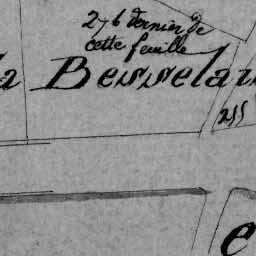 276 dernier de
cette feuille
la Besselau
255
e